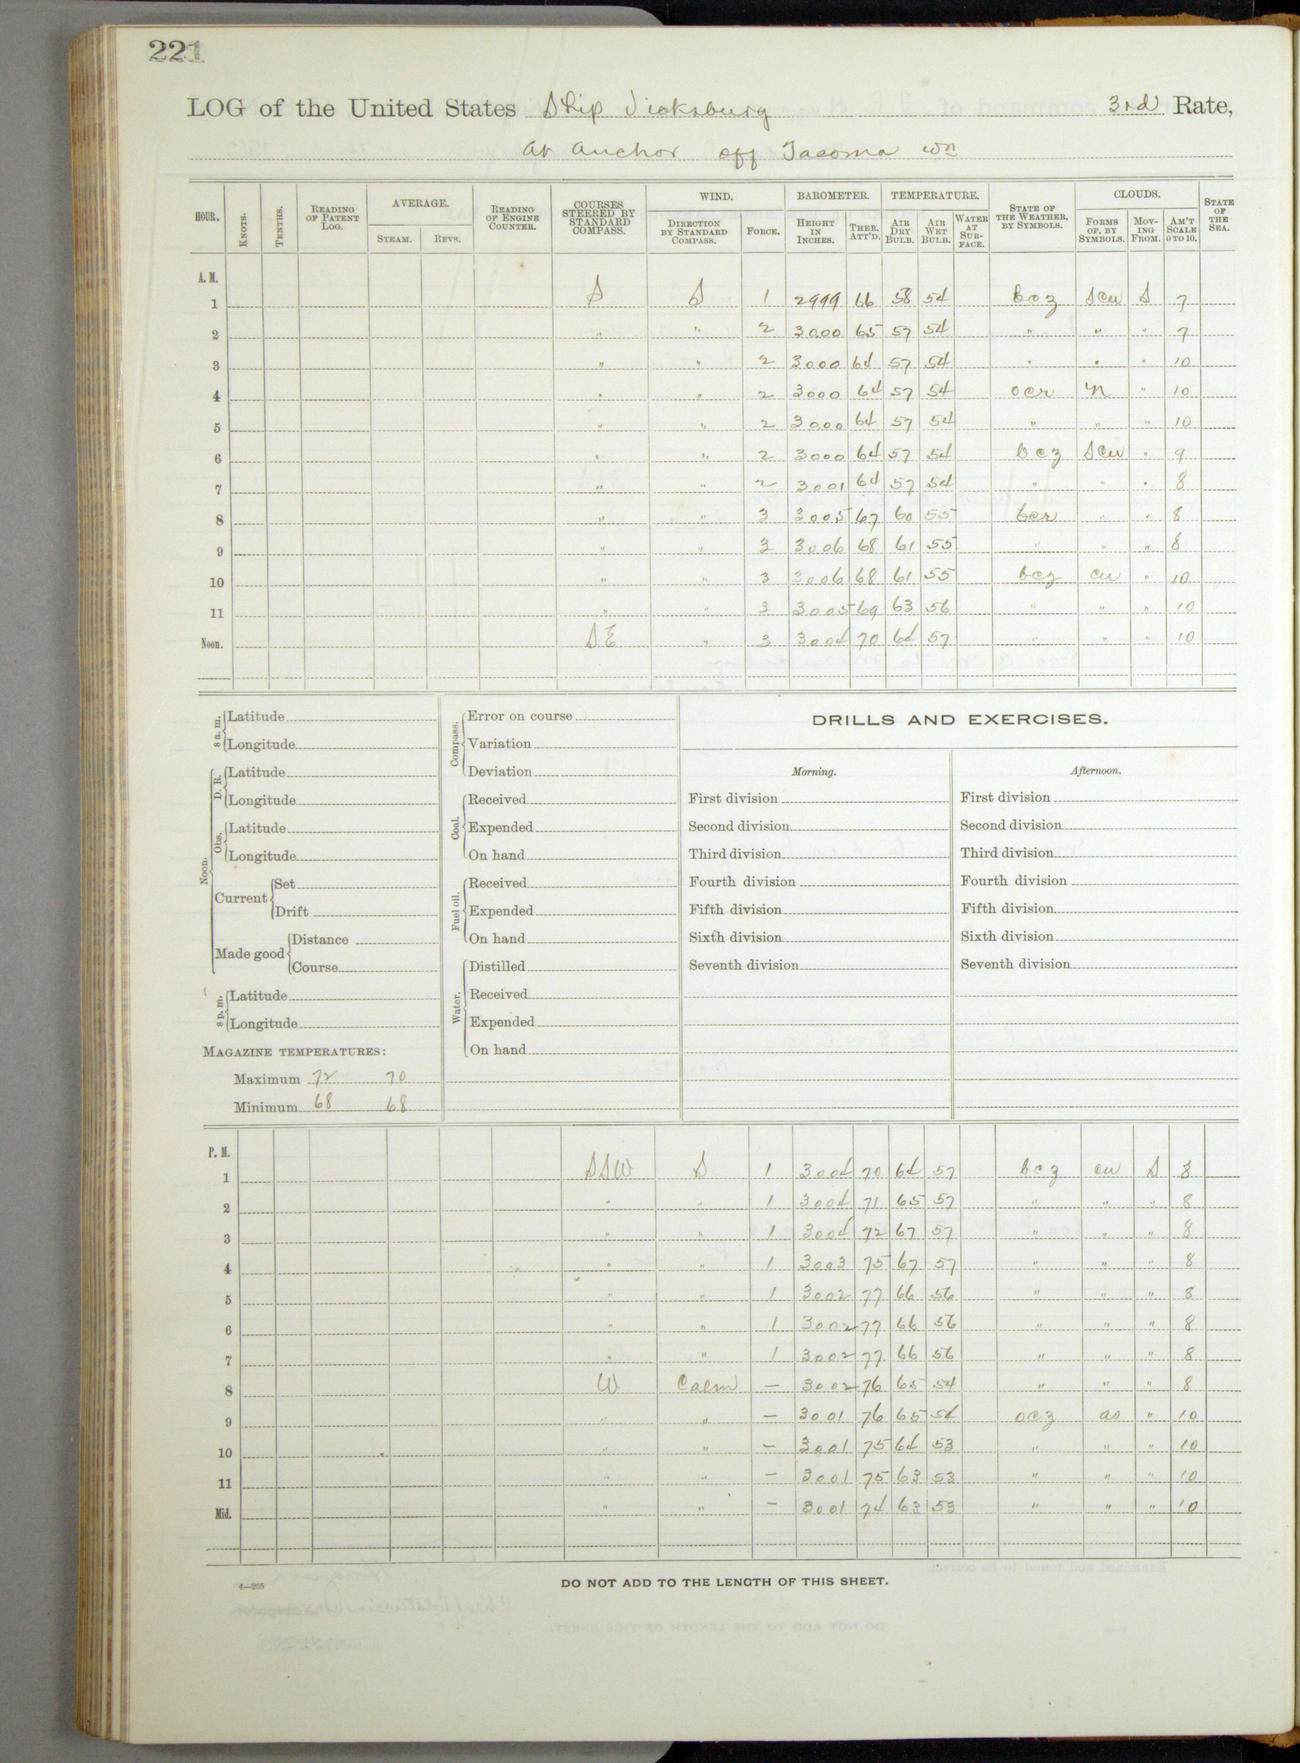 221
LOG of the United States Ship Vicksburg 3rd Rate,
At Anchor off Tacoma Wn
HOUR. KNOTS. TENTHS. READING OF PATENT LOG. AVERAGE. STEAM. REVS. READING OF ENGINE COUNTER. COURSES STEERED BY STANDARD COMPASS. WIND. DIRECTION BY STANDARD COMPASS. FORCE. BAROMETER. HEIGHT IN INCHES. THER. ATT'D. TEMPERATURE. AIR DRY BULB. AIR WET BULB. WATER AT SURFACE. STATE OF THE WEATHER, BY SYMBOLS. CLOUDS. FORMS OF, BY SYMBOLS. MOVING FROM. AM'T SCALE 0 TO 10. STATE OF THE SEA.
A. M.
1 S S 1 2999 66 58 54 bcz Scu S 7
2 " " 2 3000 65 57 54 " " " 7
3 " " 2 3000 64 57 54 " " " 10
4 " " 2 3000 64 57 54 ocr N " 10
5 " " 2 3000 64 57 54 " " " 10
6 " " 2 3000 64 57 54 bcz Scu " 9
7 " " 2 3001 64 57 54 " " " 8
8 " " 3 3005 67 60 55 bcr " " 8
9 " " 3 3006 68 61 55 " " " 8
10 " " 3 3006 68 61 55 bcz cu " 10
11 " " 3 3005 69 63 56 " " " 10
Noon. SE " 3 3004 70 64 57 " " " 10
8 a. m. Latitude
Longitude
Noon. D. R. Latitude
Longitude
Obs. Latitude
Longitude
Current Set
Drift
Made good Distance
Course
8 p. m. Latitude
Longitude
MAGAZINE TEMPERATURES:
Maximum 72 70
Minimum 68 68
Compass. Error on course
Variation
Deviation
Coal. Received
Expended
On hand
Fuel oil. Received
Expended
On hand
Water. Distilled
Received
Expended
On hand
DRILLS AND EXERCISES.
Morning.
First division
Second division
Third division
Fourth division
Fifth division
Sixth division
Seventh division
Afternoon.
First division
Second division
Third division
Fourth division
Fifth division
Sixth division
Seventh division
P. M.
1 SSW S 1 3004 70 64 57 bcz cu S 8
2 " " 1 3004 71 65 57 " " " 8
3 " " 1 3004 72 67 57 " " " 8
4 " " 1 3003 75 67 57 " " " 8
5 " " 1 3002 77 66 56 " " " 8
6 " " 1 3002 77 66 56 " " " 8
7 " " 1 3002 77 66 56 " " " 8
8 W Calm — 3002 76 65 54 " " " 8
9 " " — 3001 76 65 54 ocz as " 10
10 " " — 3001 75 64 53 " " " 10
11 " " — 3001 75 63 53 " " " 10
Mid. " " — 3001 74 63 53 " " " 10
DO NOT ADD TO THE LENGTH OF THIS SHEET.